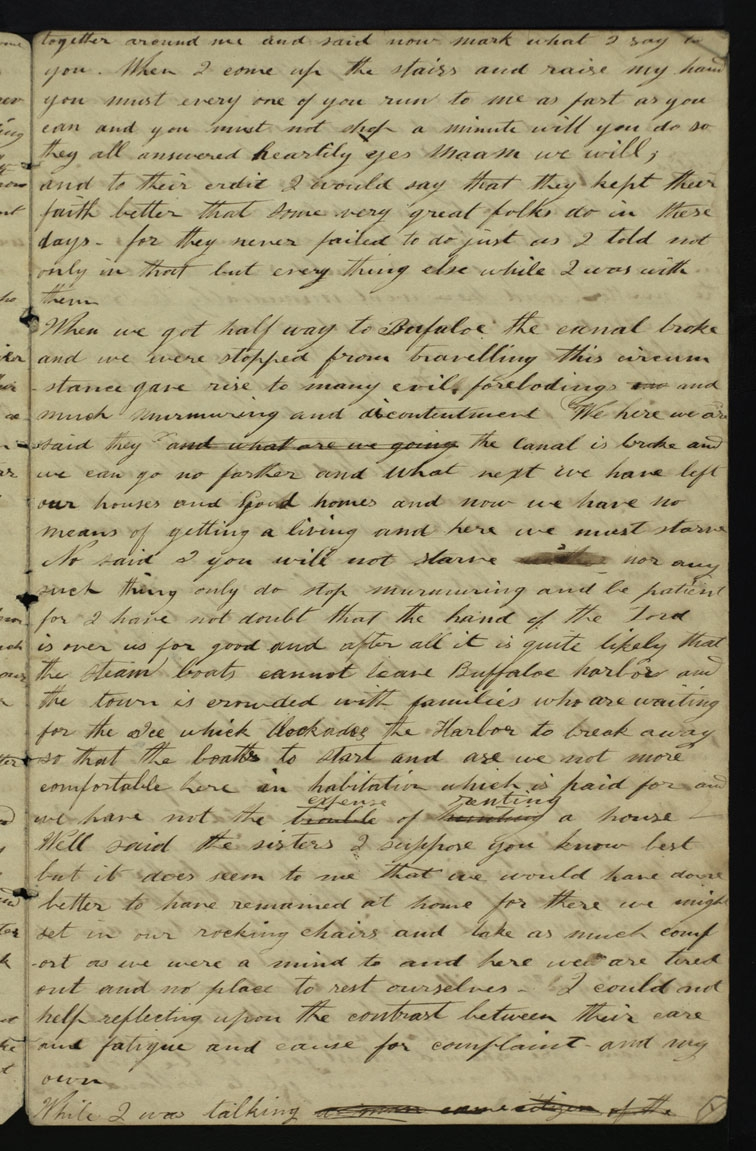 together around me and said now mark what I say to
you. When I come up the stairs and raise my hand
you must every one of you run to me as fast as you
can and you must not stop a minute will you do so
they all answered heartily yes Maam we will;
and to their crdit I would say that they kept their
faith better that some very great folks do in these
days - for they never failed to do just as I told not
only in that but every thing else while I was with
them
When we got half way to Bufaloe the canal broke
and we were stopped from travelling this circum
-stance gave rise to many evil forebodings and
much murmuring and discontentment We here we are
said they and what are we going the canal is broke and
we can go no farther and what next we have left
our houses and Good homes and now we have no
means of getting a living and here we must starve
No said I you will not starve nor any
such thing only do stop murmuring and be patient
for I have not doubt that the hand of the Lord
is over us for good and after all it is quite likely that
the steam boats cannot leave Buffaloe harbor and
the town is crowded with families who are waiting
for the Ice which blockades the Harbor to break away
so that the boats to start and are we not more
comfortable here in habitation which is paid for and
we have not the trouble expense of renting a house -
Well said the sisters I suppose you know best
but it does seem to me that we would have done
better to have remained at home for there we might
set in our rocking chairs and take as much comf
-ort as we were a mind to and here we are tired
out and no place to rest ourselves - I could not
help reflecting upon the contrast between their care
and fatigue and cause for complaint and my
own
While I was talking a man came citizen of the